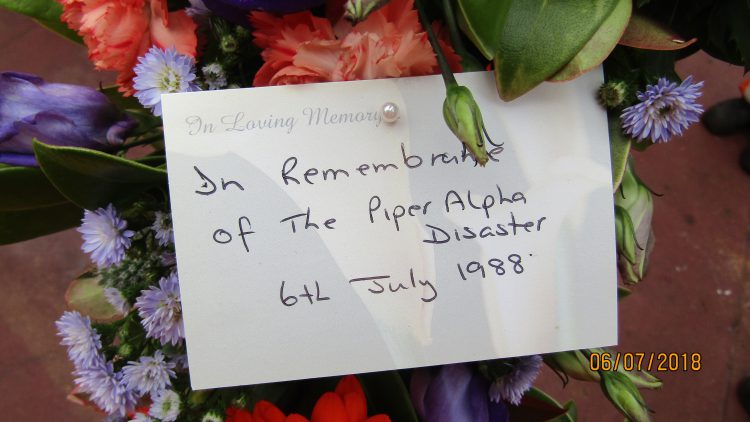 In Loving Memory
In Remembrance
of The Piper Alpha
Disaster
6th July 1988
06/07/2018